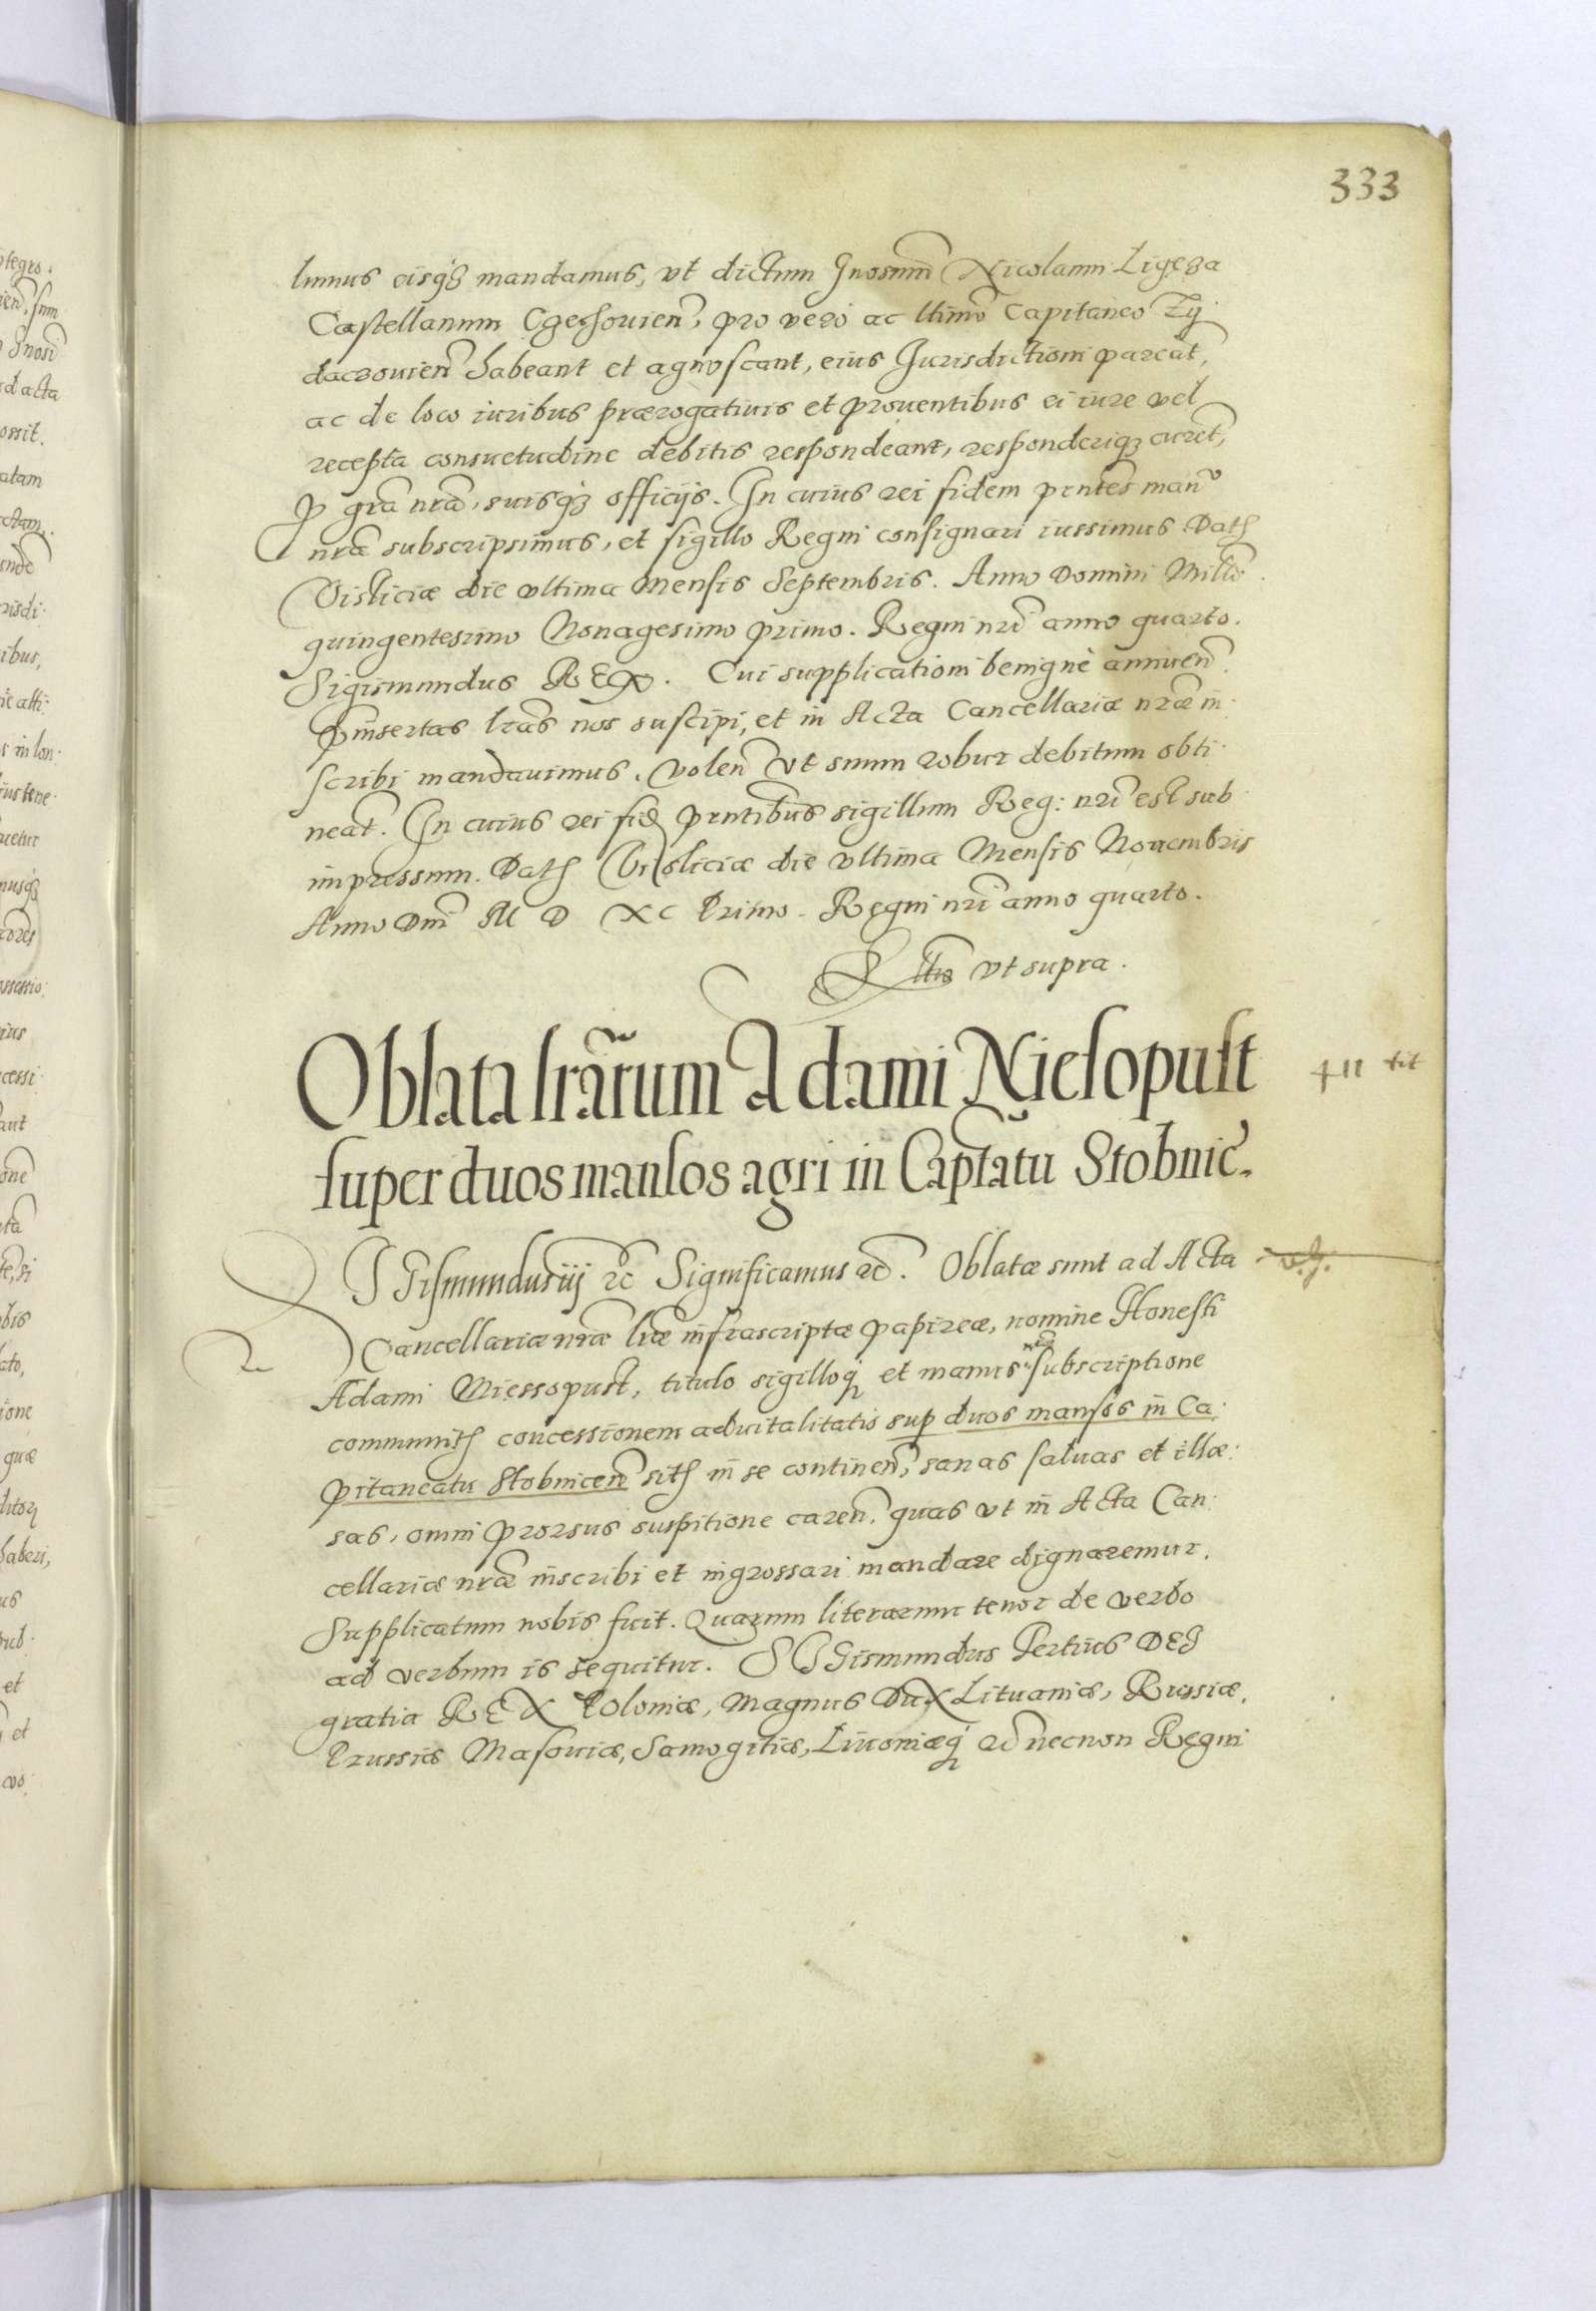 333
limus eisq3 mandamus, vt dictum Gnosum Nicolaum Ligęza
Castellanum Czechouien, pro vero ac ltimo Capitaneo Zy
daczouien habeant et agnoscant, eius Jurisdictioni pareāt,
ac de loco iuribus prærogatiuis et prouentibus ei iure vel
recepta consuetudine debitis respondeant, responderiq3 curet,
p gra nrā, suisq3 officijs. In cuius rei fidem pntes manu
nrā subscripsimus, et sigillo Regni consignari iussimus Dat
Visliciæ die vltima Mensis Septembris. Anno Domini Millmo
quingentesimo Nonagesimo primo. Regni nri anno quarto.
Sigismundus REX. Cui supplicationi benignè annuen
pinsertas lras nos suscipi, et in Acta Cancellariæ nræ in:
scribi mandauimus. volen vt suum robur debitum obti:
neat. In cuius rei fid pntibus sigillum Reg: nri est sub
impressum. Dat Visliciæ die vltima Mensis Nouembris
Anno Dni M D XC Primo. Regni nri anno quarto.
vt supra.
Oblata lrārum Adami Niesopust
super duos mansos agri in Captatu Stobnic.
411 tit
SIGismundus iij &c Significamus &c. Oblatæ sunt ad Acta
Cancellariæ nræ lræ infrascriptæ papireæ, nomine Honesti
Adami Miessopust, titulo sigilloq et manus nræ subscriptione
communit concessionem aduitalitatis sup duos mansos in Ca:
pitaneatu Stobnicen sit in se continen, sanas saluas et illæ:
sas, omni prorsus suspitione caren, quas vt in Acta Can:
cellariæ nræ inscribi et ingrossari mandare dignaremur.
Supplicatum nobis fuit. Quarum literarum tenor de verbo
ad verbum is sequitur. SIGismundus Tertius DEI
gratia REX Poloniæ, Magnus Dux Lituaniæ, Russiæ,
Prussiæ Masouiæ, Samogitiæ, Liuoniæq &c necnon Regni